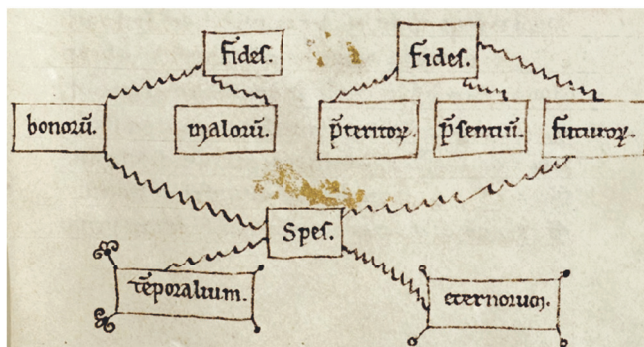 Fides. Fides.
bonoꝝ̄. maloꝝ̄. p̄teritoꝝ. p̄sentiū. futuroꝝ.
Spes.
tēporalium. eternorum.